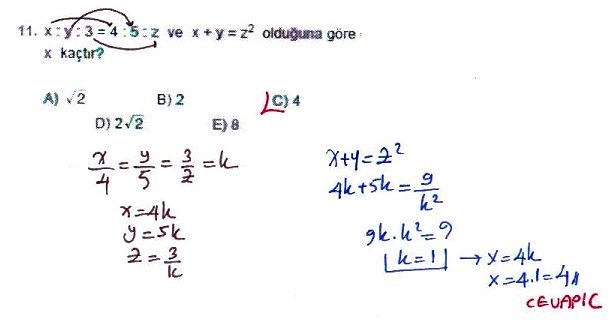 11. x : y : 3 = 4 : 5 : z ve x + y = z² olduğuna göre
x kaçtır?
A) √2 B) 2 C) 4
D) 2√2 E) 8
x/4 = y/5 = 3/z = k
x = 4k
y = 5k
z = 3/k
x+y = z²
4k+5k = 9/k²
9k.k² = 9
k = 1 → x = 4k
x = 4.1 = 4
CEVAP C